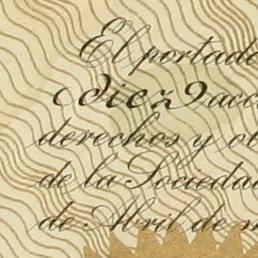 El portado
diez 9 acc
derechos y ob
de la Sociedad
de Abril de m